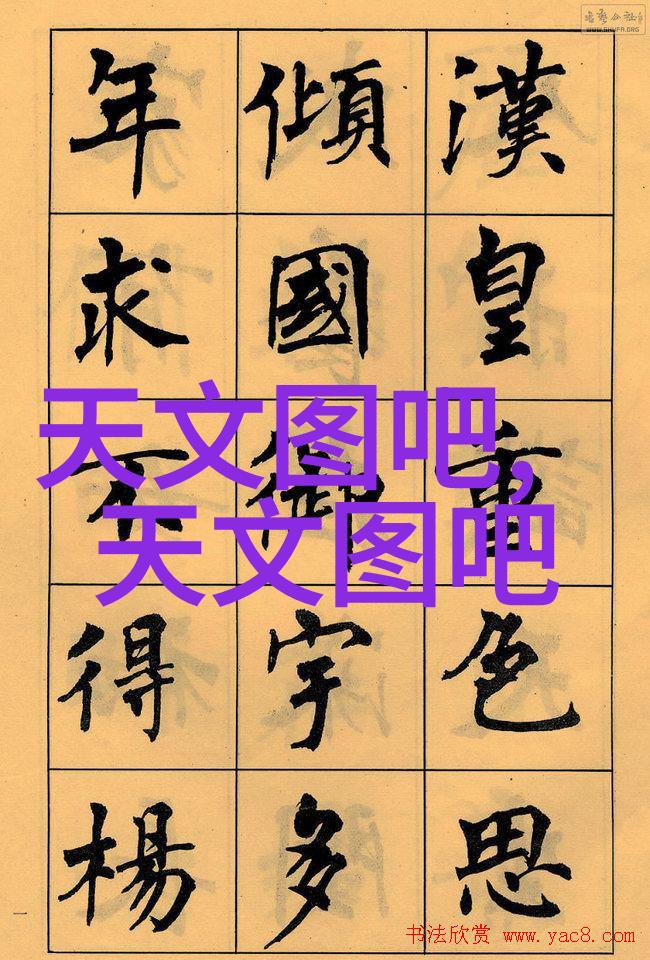 漢皇重色思
傾國御宇多
年求不得楊
天文图吧,
天文图吧
一
书法欣赏 www.yac8.com